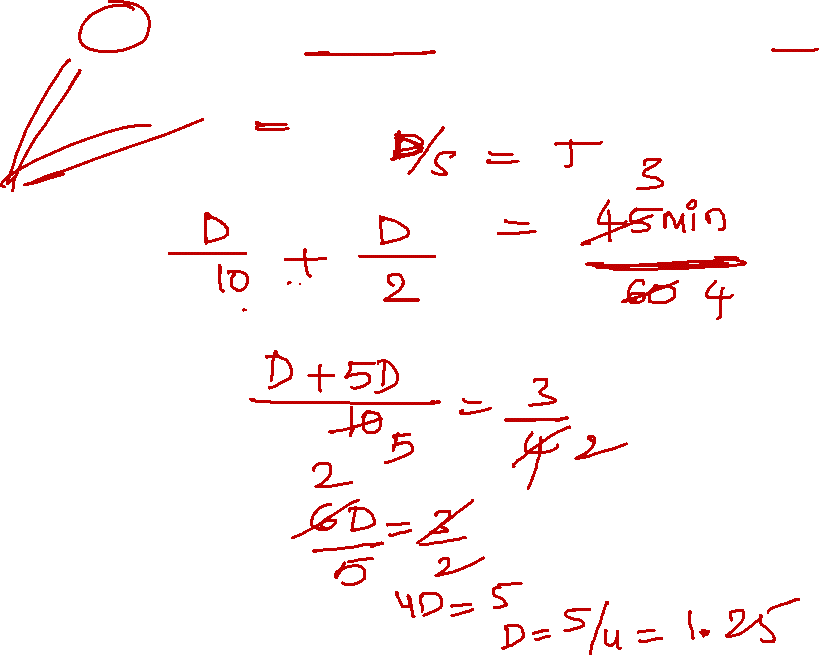 =
D/S = T
D/10 + D/2 = 45 min/60 3 4
D + 5D/10 5 = 3/4 2
2 6D/5 = 3/2
4D = 5
D = 5/4 = 1.25